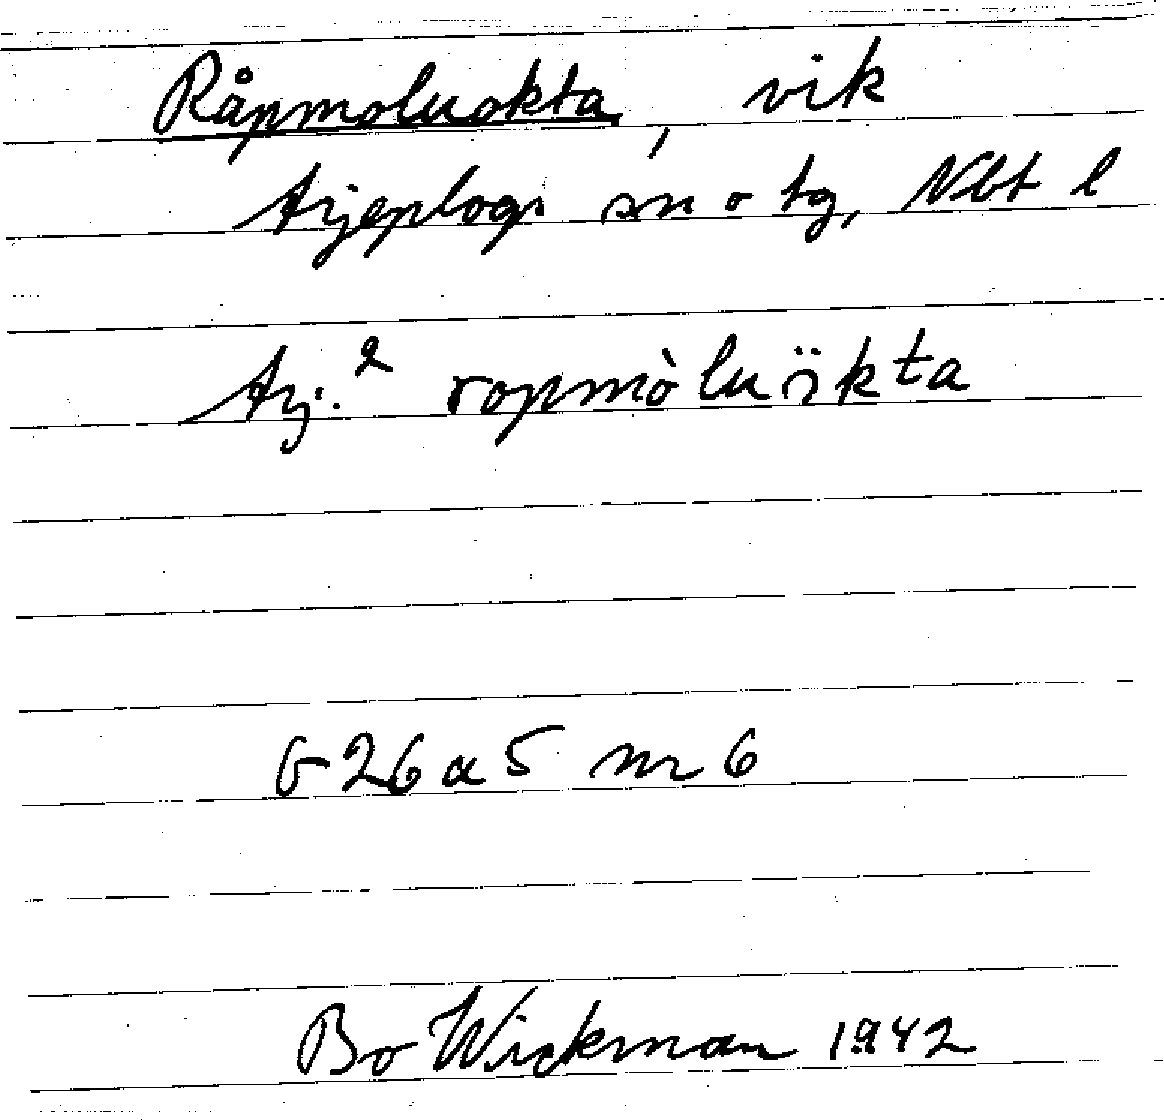 Råpmoluokta, vik
Arjeplogs sn o tg, Nbt l
Arj.² ropmòluökta
G 26 a 5 nr 6
Bo Wickman 1942